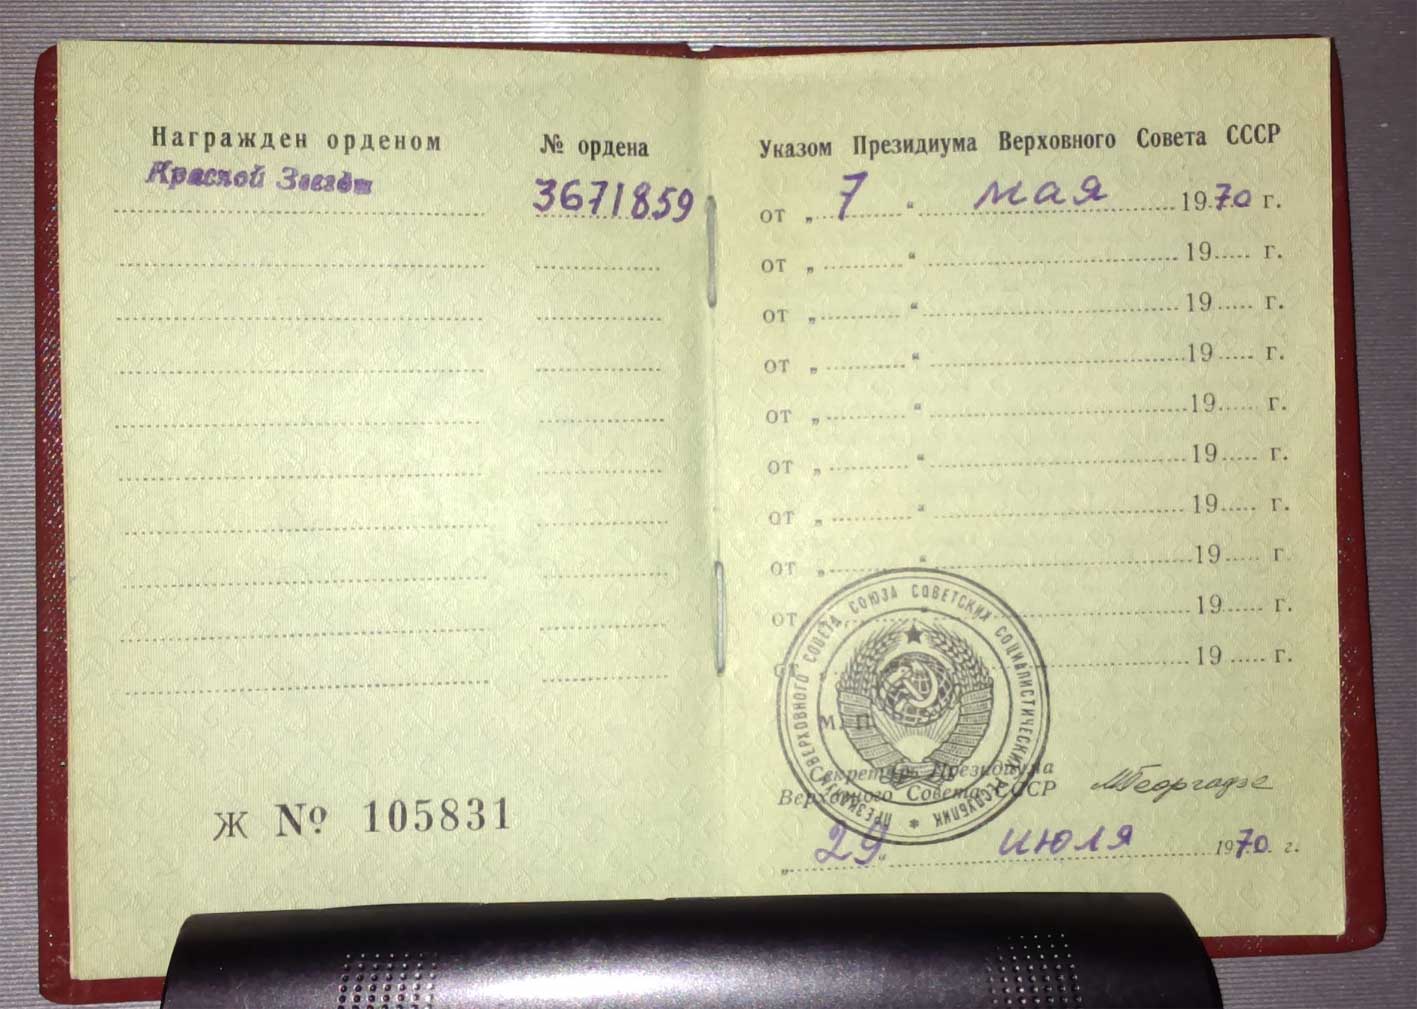 Награжден орденом
№ ордена
Красной Звезды
3671859
Ж № 105831
Указом Президиума Верховного Совета СССР
от „ 7 “ мая 1970 г.
от „ “ 19 г.
от „ “ 19 г.
от „ “ 19 г.
от „ “ 19 г.
от „ “ 19 г.
от „ “ 19 г.
от „ “ 19 г.
от „ “ 19 г.
от „ “ 19 г.
ПРЕЗИДИУМ ВЕРХОВНОГО СОВЕТА СОЮЗА СОВЕТСКИХ СОЦИАЛИСТИЧЕСКИХ РЕСПУБЛИК *
М. П.
Секретарь Президиума
Верховного Совета СССР
МГеоргадзе
„ 29 “ июля 1970 г.